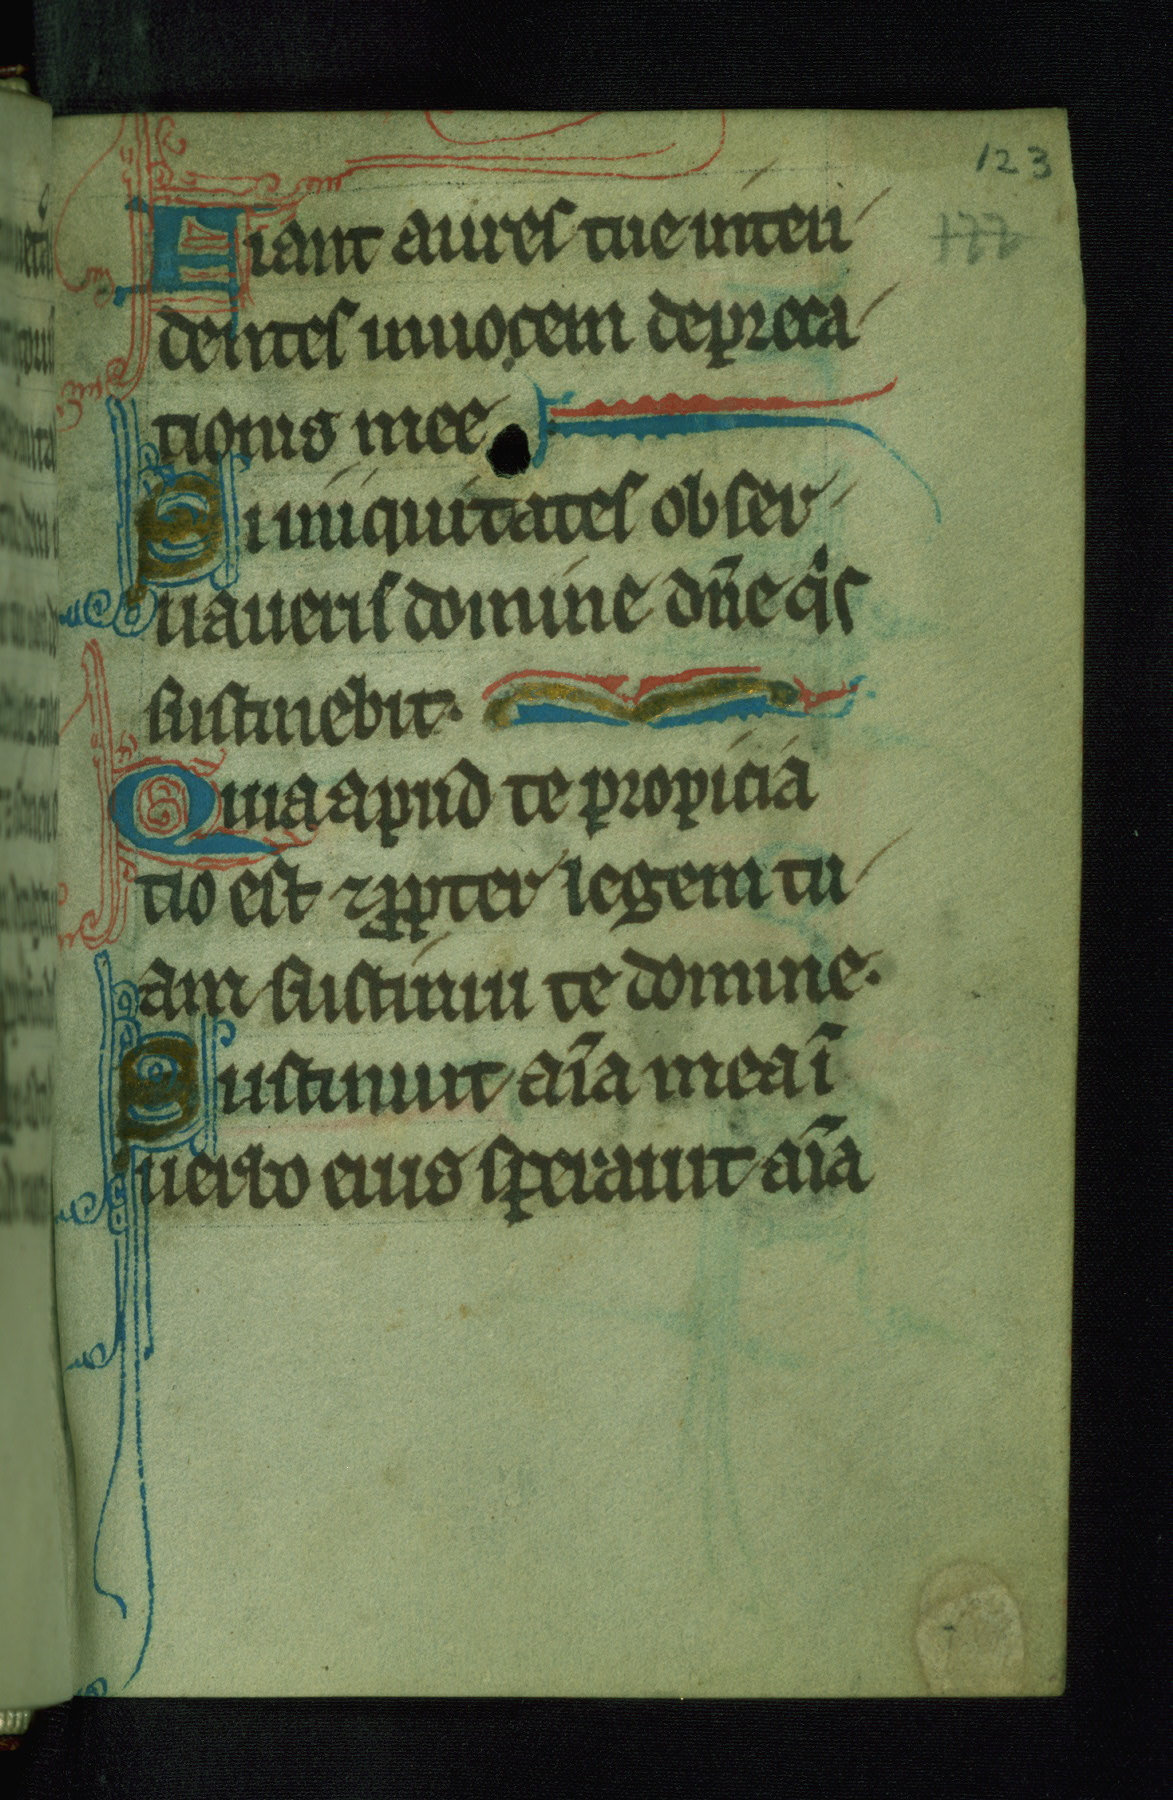 123
177
Fiant aures tue inten
dentes in uocem depreca
tionis mee
Si iniquitates obser
uaueris domine dñe qis
sustinebit.
Quia apud te propicia
tio est ⁊ ꝓpter legem tu
am sustinui te domine.
Sustinuit aīa mea ī
uerbo eius sperauit aīa